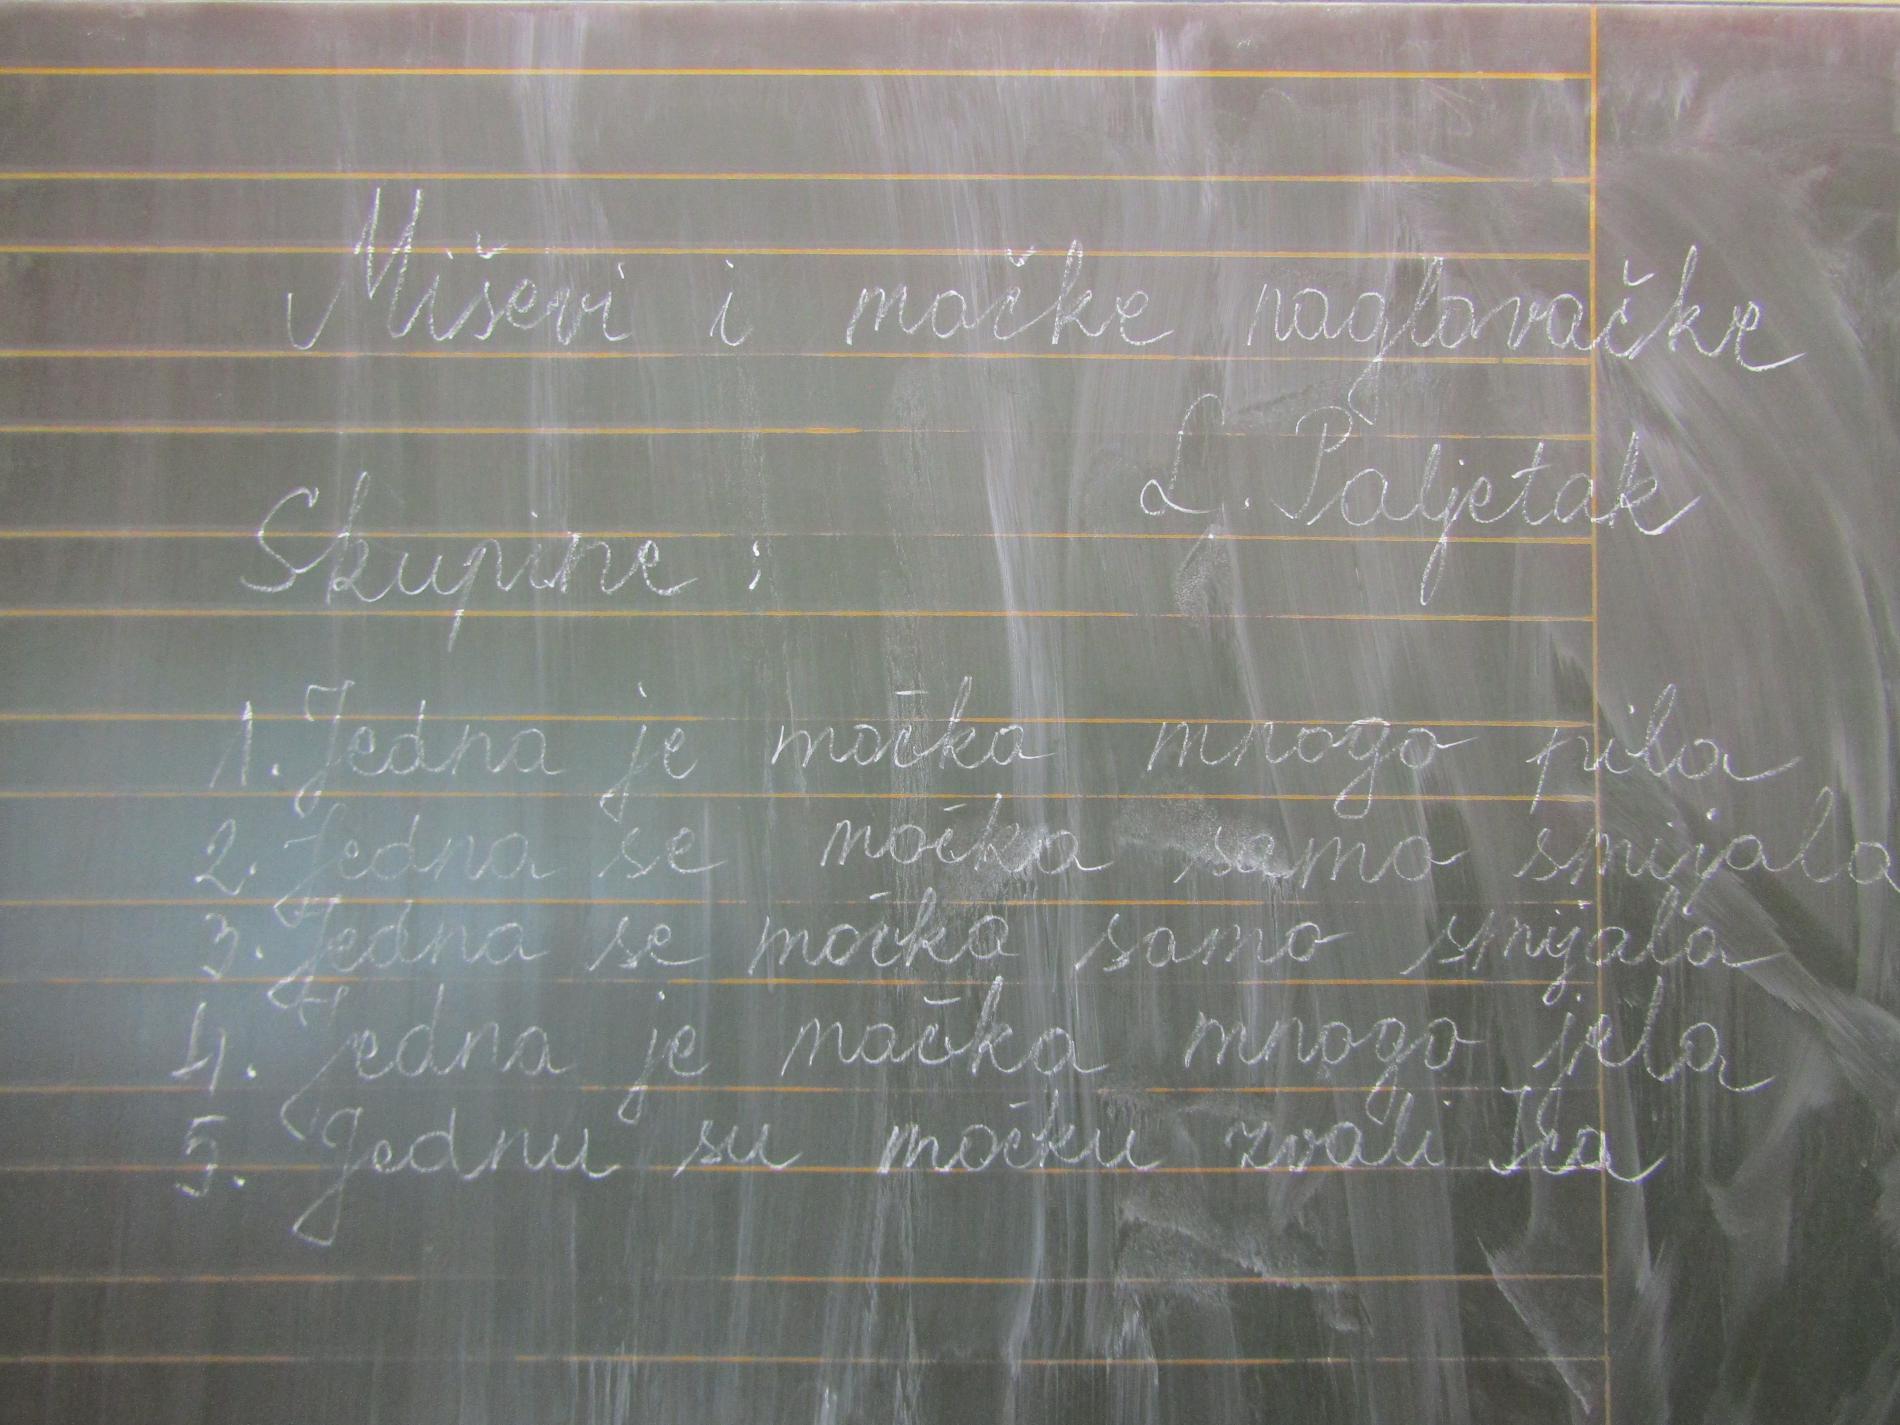 Miševi i mačke naglavačke
L. Paljetak
Skupine:
1. Jedna je mačka mnogo pila
2. Jedna se mačka samo smijala
3. Jedna se mačka samo smijala
4. Jedna je mačka mnogo jela
5. Jednu su mačku zvali Ica